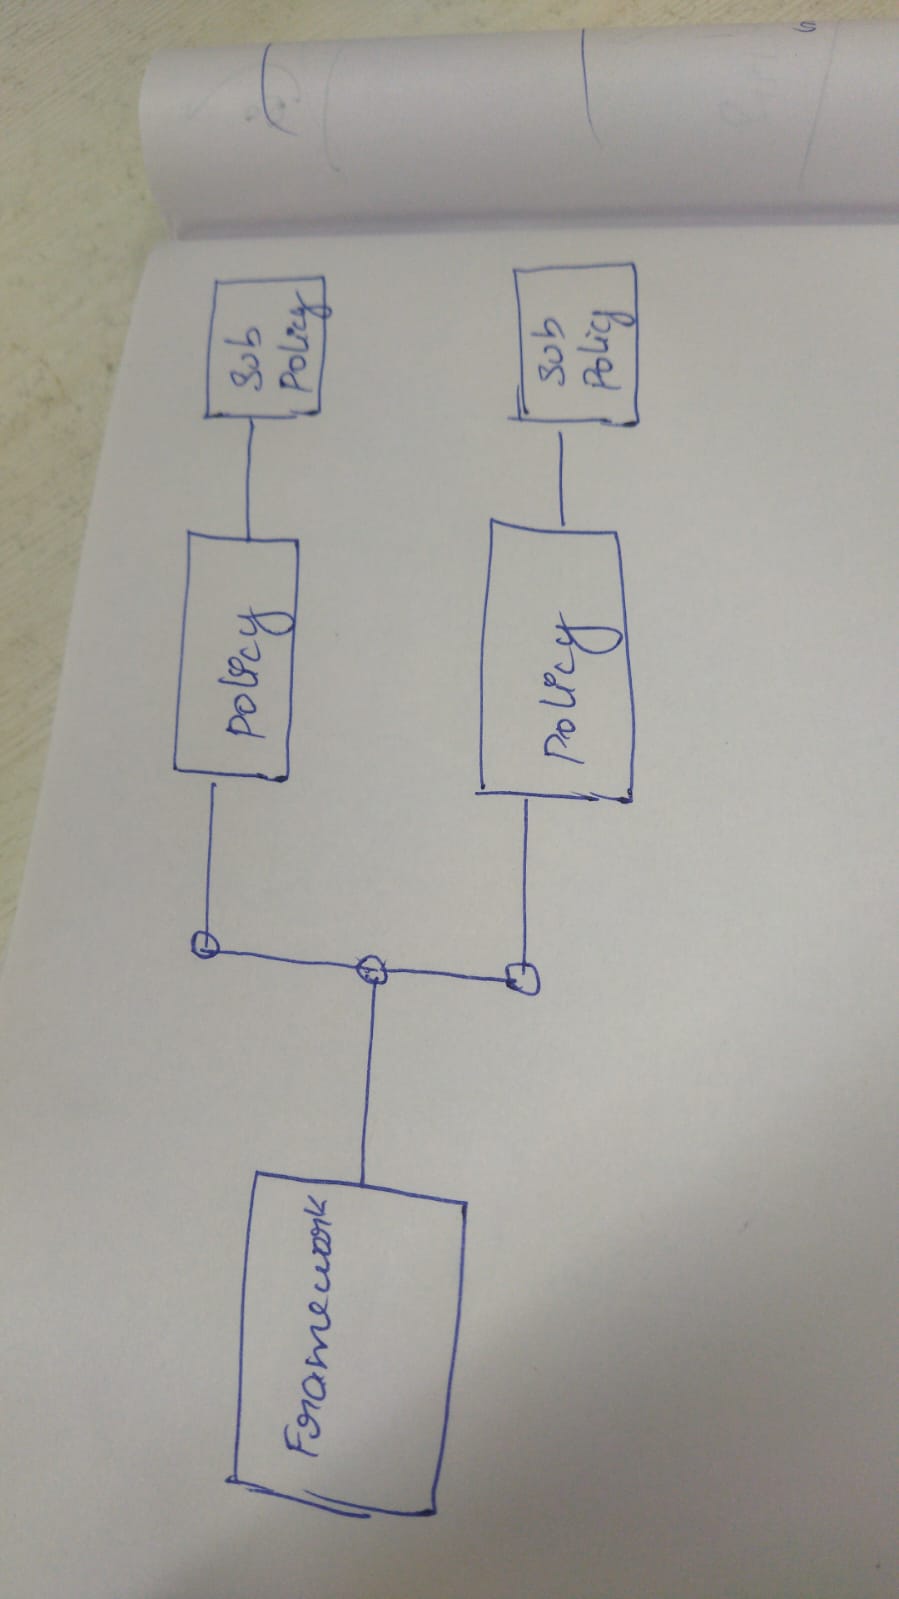 Framework
Policy
Sub
Policy
Policy
Sub
Policy